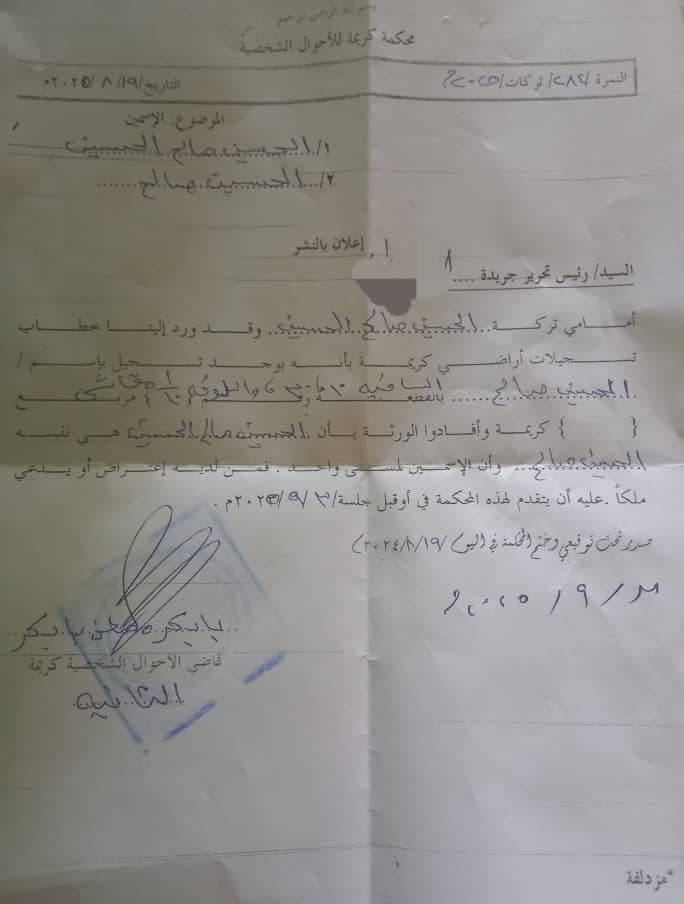 بسم الله الرحمن الرحيم
محكمة كريمة للأحوال الشخصية
النمرة /٢٨٢/ تركات/٢٠٢٥م
التاريخ/ ١٩/ ٨/ ٢٠٢٥م
الموضوع: الإسمين
١/ الحسين صالح الحسين
٢/... الحسين صالح.......
إعلان بالنشر
السيد/ رئيس تحرير جريدة ....
أمامي تركة.. الحسين صالح الحسين.. وقد ورد إلينا خطاب
تسجيلات أراضي كريمة بأنه يوجد تسجيل باسم /
الحسين صالح ...... بالقطعة رقم { } مربع
{ } كريمة وأفادوا الورثة بأن الحسين صالح الحسين هي نفسه
الحسين صالح... وأن الإسمين لمسمى واحد . فمن لديه إعتراض أو يدعي
ملكاً .عليه أن يتقدم لهذه المحكمة في أوقبل جلسة/٣/ ٩/ ٢٠٢٥م .
صدر تحت توقيعي وختم المحكمة في اليوم /١٩/ ٨/ ٢٠٢٤)
٣ / ٩ / ٢٠٢٥م
بابكر بابكر
قاضي الأحوال الشخصية كريمة
الثانيه
*مزدلفة